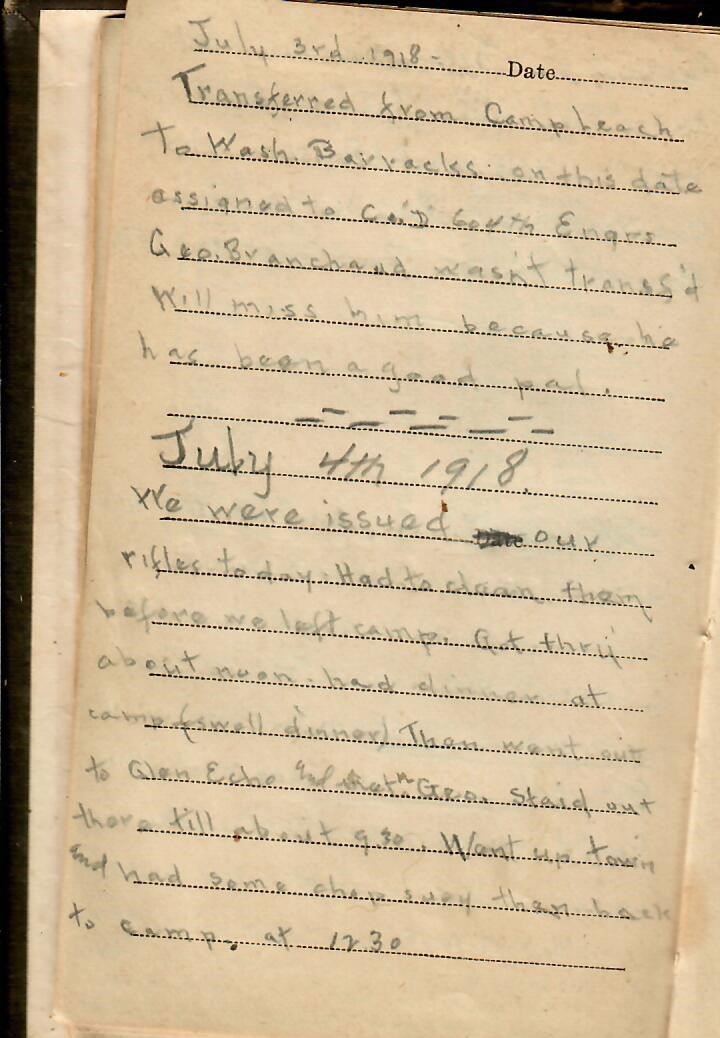 July 3rd 1918 - Date
Transferred from Camp Leach
To Wash. Barracks on this date
assigned to Co. "D" 604th Engrs
Geo. Branchaud wasn't transf'd
Will miss him because he
has been a good pal.
July 4th 1918.
We were issued our
rifles today. Had to clean them
before we left camp. Got thru
about noon. had dinner at
camp (swell dinner) Then went out
to Glen Echo and met Geo. Staid out
there till about 9:30. Went up town
and had some chop suey then back
to camp. at 12 30